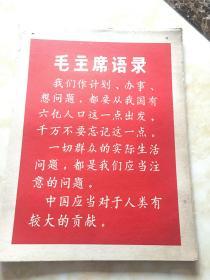 毛主席语录
我们作计划、办事、
想问题，都要从我国有
六亿人口这一点出发，
千万不要忘记这一点。
一切群众的实际生活
问题，都是我们应当注
意的问题。
中国应当对于人类有
较大的贡献。